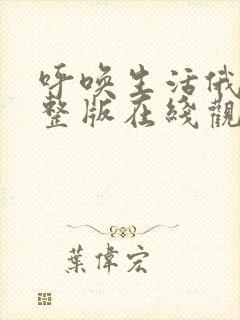 呼唤生活俄
整版在綫觀
葉偉宏